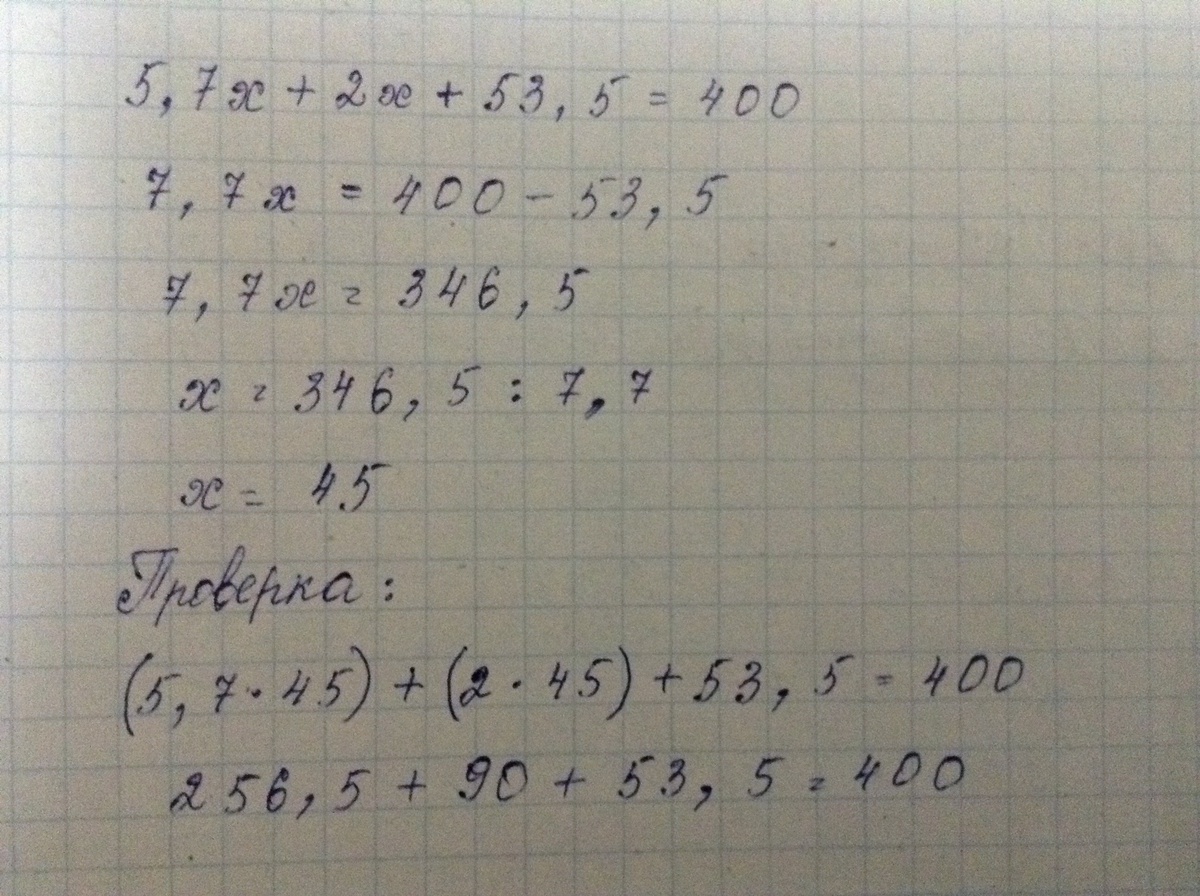 5,7x + 2x + 53,5 = 400
7,7x = 400 - 53,5
7,7x = 346,5
x = 346,5 : 7,7
x = 45
Проверка:
(5,7 · 45) + (2 · 45) + 53,5 = 400
256,5 + 90 + 53,5 = 400